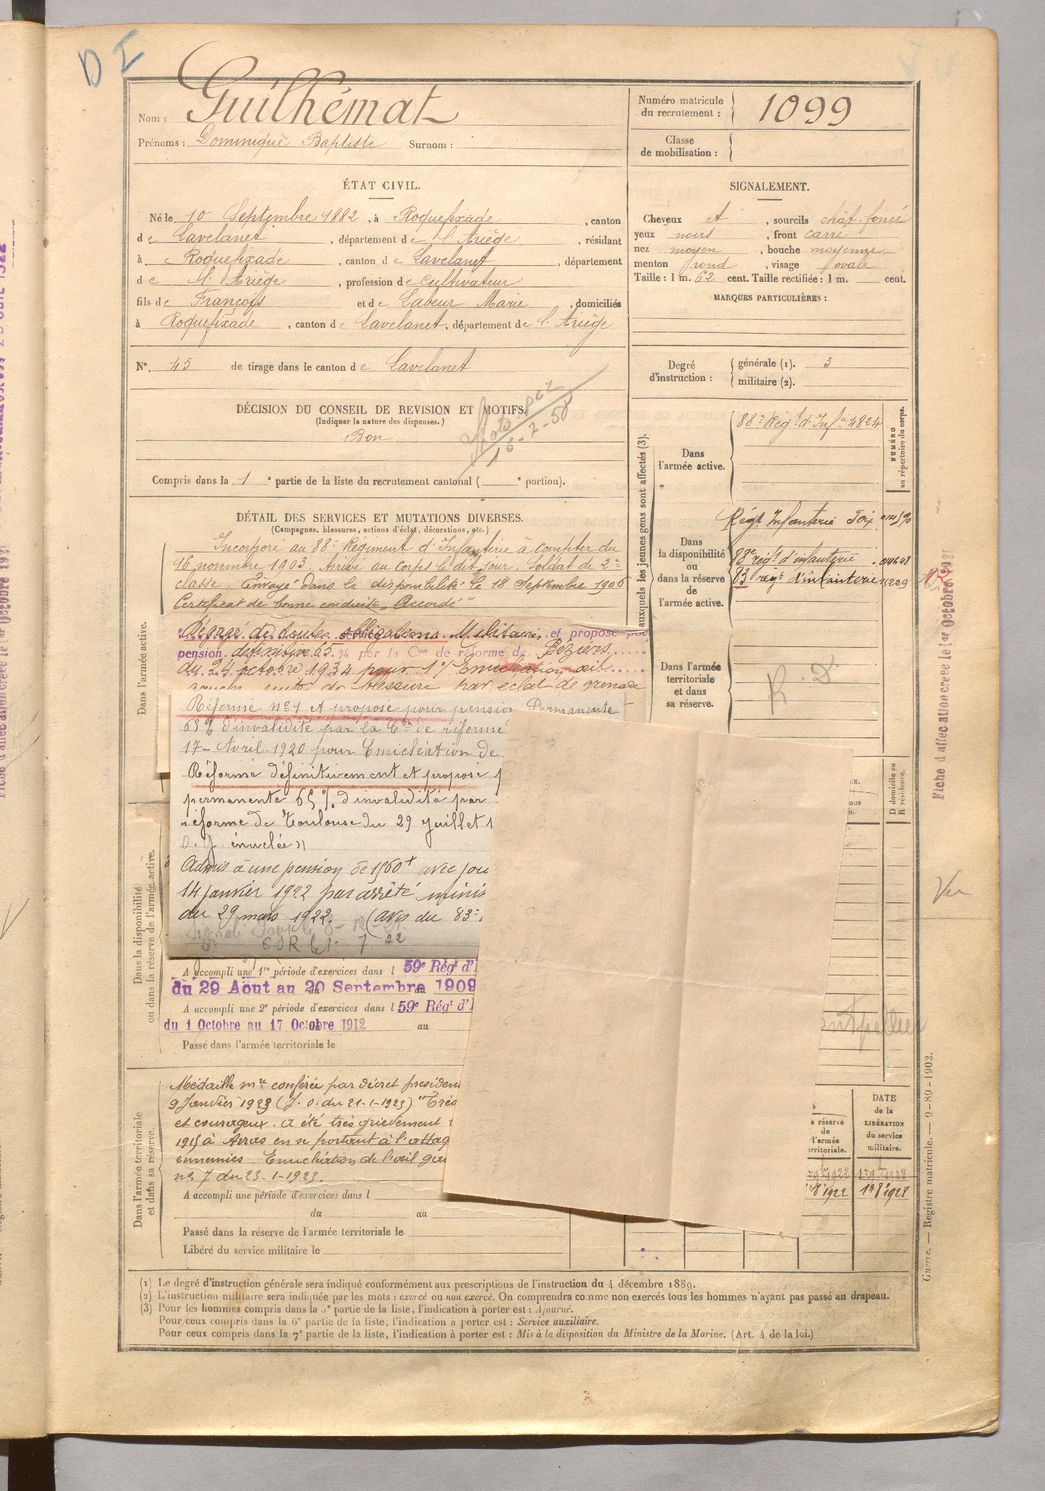 DI
Nom : Guilhémat
Prénoms : Dominique Baptiste Surnom :
Numéro matricule du recrutement : 1099
Classe de mobilisation :
ÉTAT CIVIL.
Né le 10 Septembre 1882, à Roquefixade, canton
de Lavelanet, département de l'Ariège, résidant
à Roquefixade, canton de Lavelanet, département
de l'Ariège, profession de Cultivateur
fils de François et de Labeur Marie, domiciliés
à Roquefixade, canton de Lavelanet, département de l'Ariège
SIGNALEMENT.
Cheveux et, sourcils chât. foncé
yeux noirs, front carré
nez moyen, bouche moyenne
menton rond, visage ovale
Taille : 1 m. 62 cent. Taille rectifiée : 1 m. cent.
MARQUES PARTICULIÈRES :
N°. 45 de tirage dans le canton de Lavelanet
Degré d'instruction : générale (1). 3
militaire (2).
DÉCISION DU CONSEIL DE REVISION ET MOTIFS.
(Indiquer la nature des dispenses.)
Bon
16-2-50
Compris dans la 1e partie de la liste du recrutement cantonal ( e portion).
DÉTAIL DES SERVICES ET MUTATIONS DIVERSES.
(Campagnes, blessures, actions d'éclat, décorations, etc.)
Incorporé au 88e Régiment d'Infanterie à compter du
16 novembre 1903. Arrivé au corps le dit jour. Soldat de 2e
classe. Envoyé dans la disponibilité le 18 Septembre 1906
Certificat de bonne conduite "Accordé"
Dégagé de toutes obligations Militaires et proposé pour
pension définitive 65 % par la Con de réforme de Béziers
du 24 octobre 1934 pour 1°/ Enucléation œil
gauche suite de blessure par éclat de grenade
Réformé n°1 et proposé pour pension Permanente
65 % d'invalidité par la Con de réforme
17 - Avril - 1920 pour Enucléation de
Réformé définitivement et proposé p
permanente 65 % d'invalidité par
réforme de Toulouse du 29 juillet 1
O. g. énuclée »
Admis à une pension de 1560f avec jou
14 janvier 1922 par arrêté minis
du 29 mars 1922. (avis du 83e
7 22
A accompli une 1re période d'exercices dans l 59e Régt d'I
du 29 Août au 20 Septembre 1909
A accompli une 2e période d'exercices dans l 59e Régt d'I
du 1 Octobre au 17 Octobre 1912 au
Passé dans l'armée territoriale le
Médaille mre conférée par décret présiden
9 Janvier 1923 (J. O. du 21-1-1923) "Très
et courageux. A été très grièvement
1915 à Arras en se portant à l'attaq
ennemies. Enucléation de l'œil gau
n° 7 du 23-1-1923.
A accompli une période d'exercices dans l
du au
Passé dans la réserve de l'armée territoriale le
Libéré du service militaire le
Dans l'armée active.
Dans la disponibilité ou dans la réserve de l'armée active.
Dans l'armée territoriale et dans sa réserve.
auxquels les jeunes gens sont affectés (3).
NUMÉRO au répertoire du corps.
Dans l'armée active.
88e Régt d'Infie 4824
Dans la disponibilité ou dans la réserve de l'armée active.
Régt Infanterie Foix
88e régt d'infanterie
83 régt d'infanterie
Dans l'armée territoriale et dans sa réserve.
R. D.
D domicile ou R résidence.
ontpellier
a réserve de l'armée territoriale.
DATE de la LIBÉRATION du service militaire.
Fiche d'affectation créée le 1er Octobre 1931
Guerre. — Registre matricule. — 9-89-1902.
Vu
(1) Le degré d'instruction générale sera indiqué conformément aux prescriptions de l'instruction du 4 décembre 1889.
(2) L'instruction militaire sera indiquée par les mots : exercé ou non exercé. On comprendra comme non exercés tous les hommes n'ayant pas passé au drapeau.
(3) Pour les hommes compris dans la 5e partie de la liste, l'indication à porter est : Ajourné.
Pour ceux compris dans la 6e partie de la liste, l'indication à porter est : Service auxiliaire.
Pour ceux compris dans la 7e partie de la liste, l'indication à porter est : Mis à la disposition du Ministre de la Marine. (Art. 4 de la loi.)